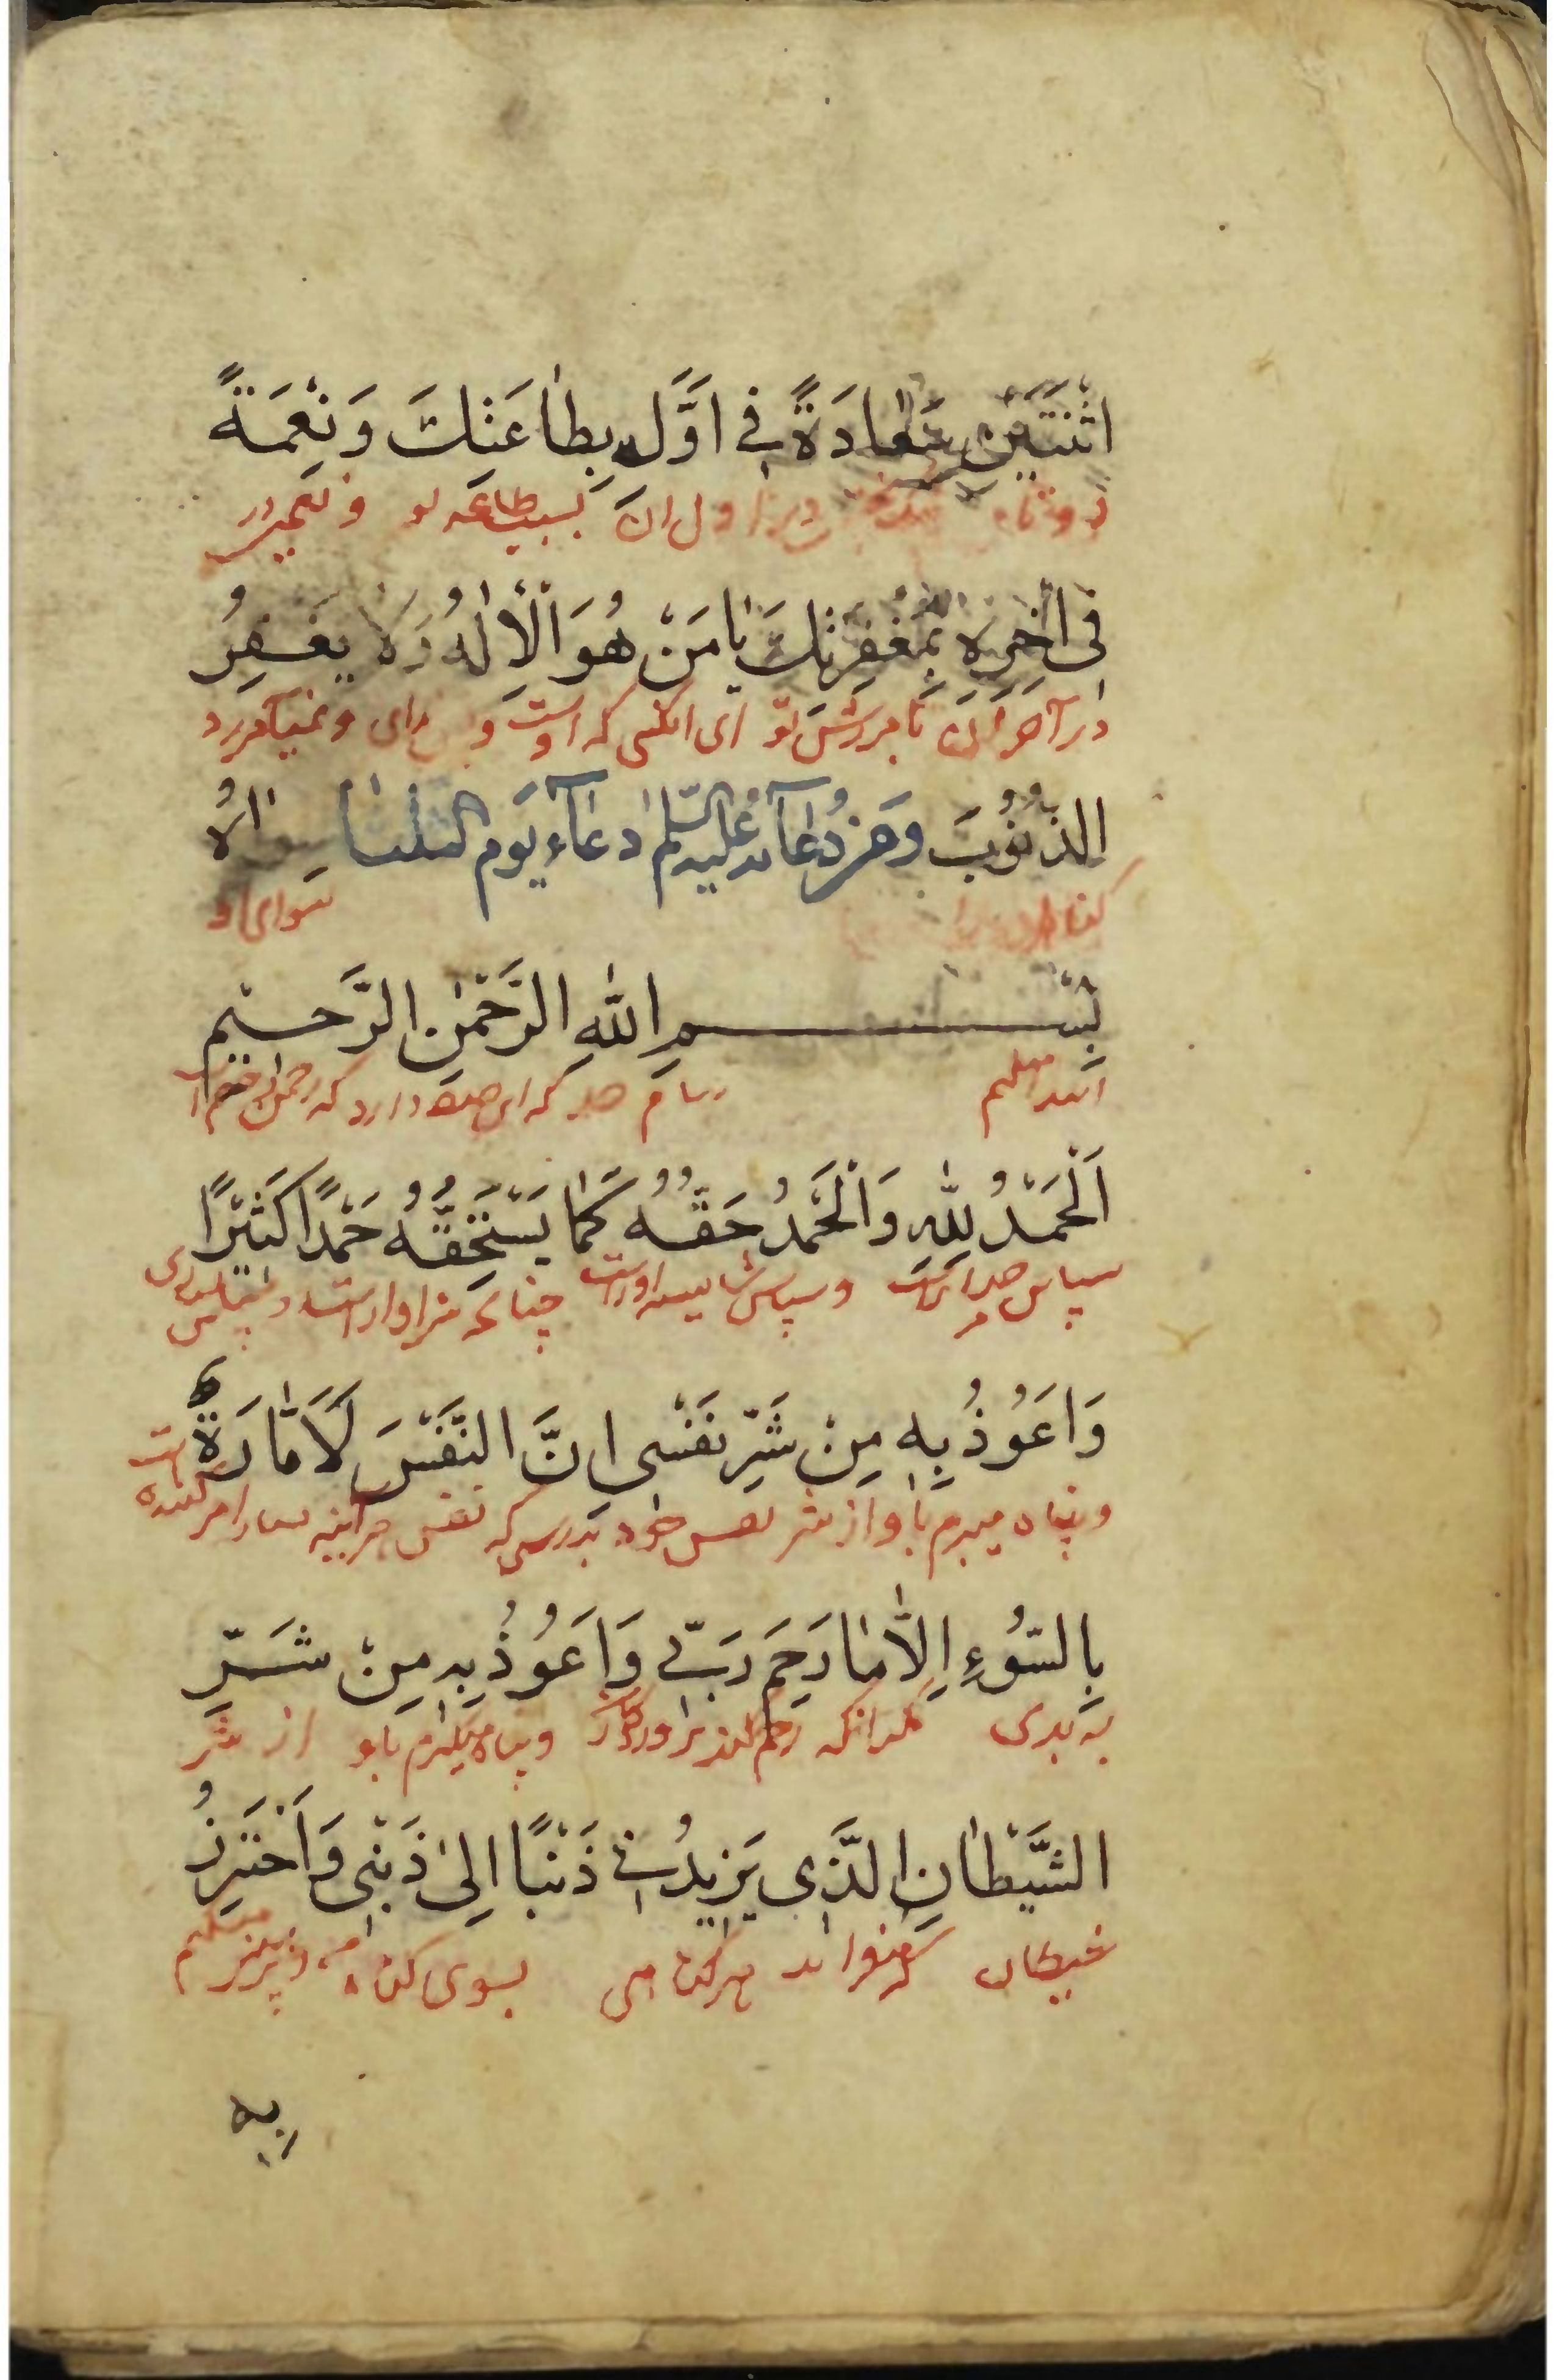 اثْنَتَيْنِ سَعَادَةً فِي اَوَّلِهِ بِطَاعَتِكَ وَنِعْمَةً
دوتا در اول ان بسبب طاعه تو و نعمتی در
فِي اٰخِرِهِ بِمَغْفِرَتِكَ يَا مَنْ هُوَ الْاِلٰهُ وَلَا يَغْفِرُ
در آخر ان بامرزش تو ای انکسی که اوست خدای و نمیامرزد
الذُّنُوبَ وَمِنْ دُعَآئِهِ عَلَيْهِ السَّلٰمُ دُعَآءِ يَوْمِ الثلثا سِوَاهُ
کناهان را سوای او
بِسْمِ اللّٰهِ الرَّحْمٰنِ الرَّحِيْمِ
ابتدا میکنم بنام که این صفه دارد که رحمن
اَلْحَمْدُ لِلّٰهِ وَالْحَمْدُ حَقُّهُ كَمَا يَسْتَحِقُّهُ حَمْدًا كَثِيْرًا
سپاس مر خدا راست و سپاس شایسته اوست چنانچه سزاوار است سپاس
وَاَعُوْذُ بِهِ مِنْ شَرِّ نَفْسِي اِنَّ النَّفْسَ لَاَمَّارَةٌ
و پناه میبرم باو از شر نفس خود بدرستی که نفس هرآینه بسیار امر کننده است
بِالسُّوْءِ اِلَّا مَا رَحِمَ رَبِّي وَاَعُوْذُ بِهِ مِنْ شَرِّ
به بدی مکر انکه رحم کند پروردکار و پناه میکیرم باو از شر
الشَّيْطَانِ الَّذِي يَزِيْدُنِي ذَنْبًا اِلٰى ذَنْبِي وَاَحْتَرِزُ
شیطان که میفزاید کناهی بسوی کناه من و پرهیز میکنم
بِهِ